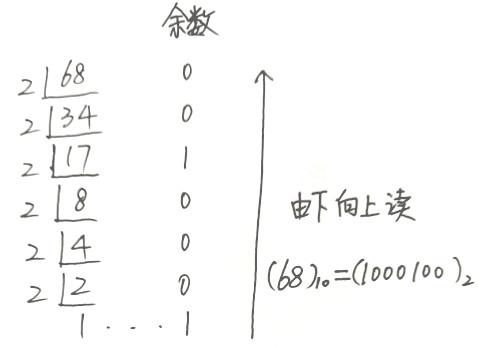 余数
2 68 0
2 34 0
2 17 1
2 8 0
2 4 0
2 2 0
1 · · · · 1
由下向上读
(68)₁₀=(1000100)₂